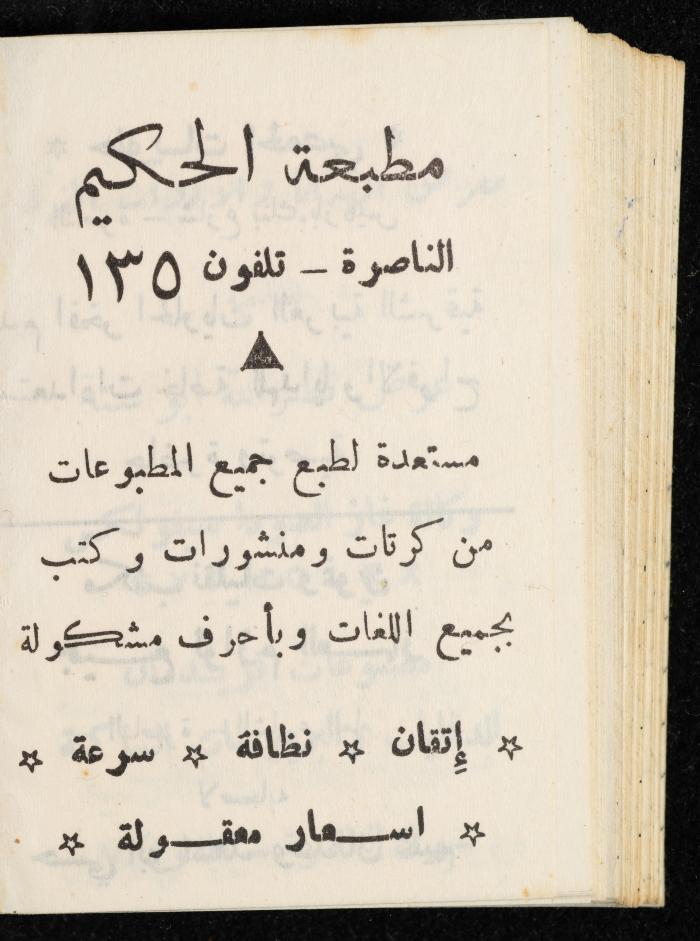 مطبعة الحكيم
الناصرة – تلفون ١٣٥
مستعدة لطبع جميع المطبوعات
من كرتات ومنشورات وكتب
بجميع اللغات وبأحرف مشكولة
☆ إِتقان ☆ نظافة ☆ سرعة ☆
☆ اســعار معقــولة ☆